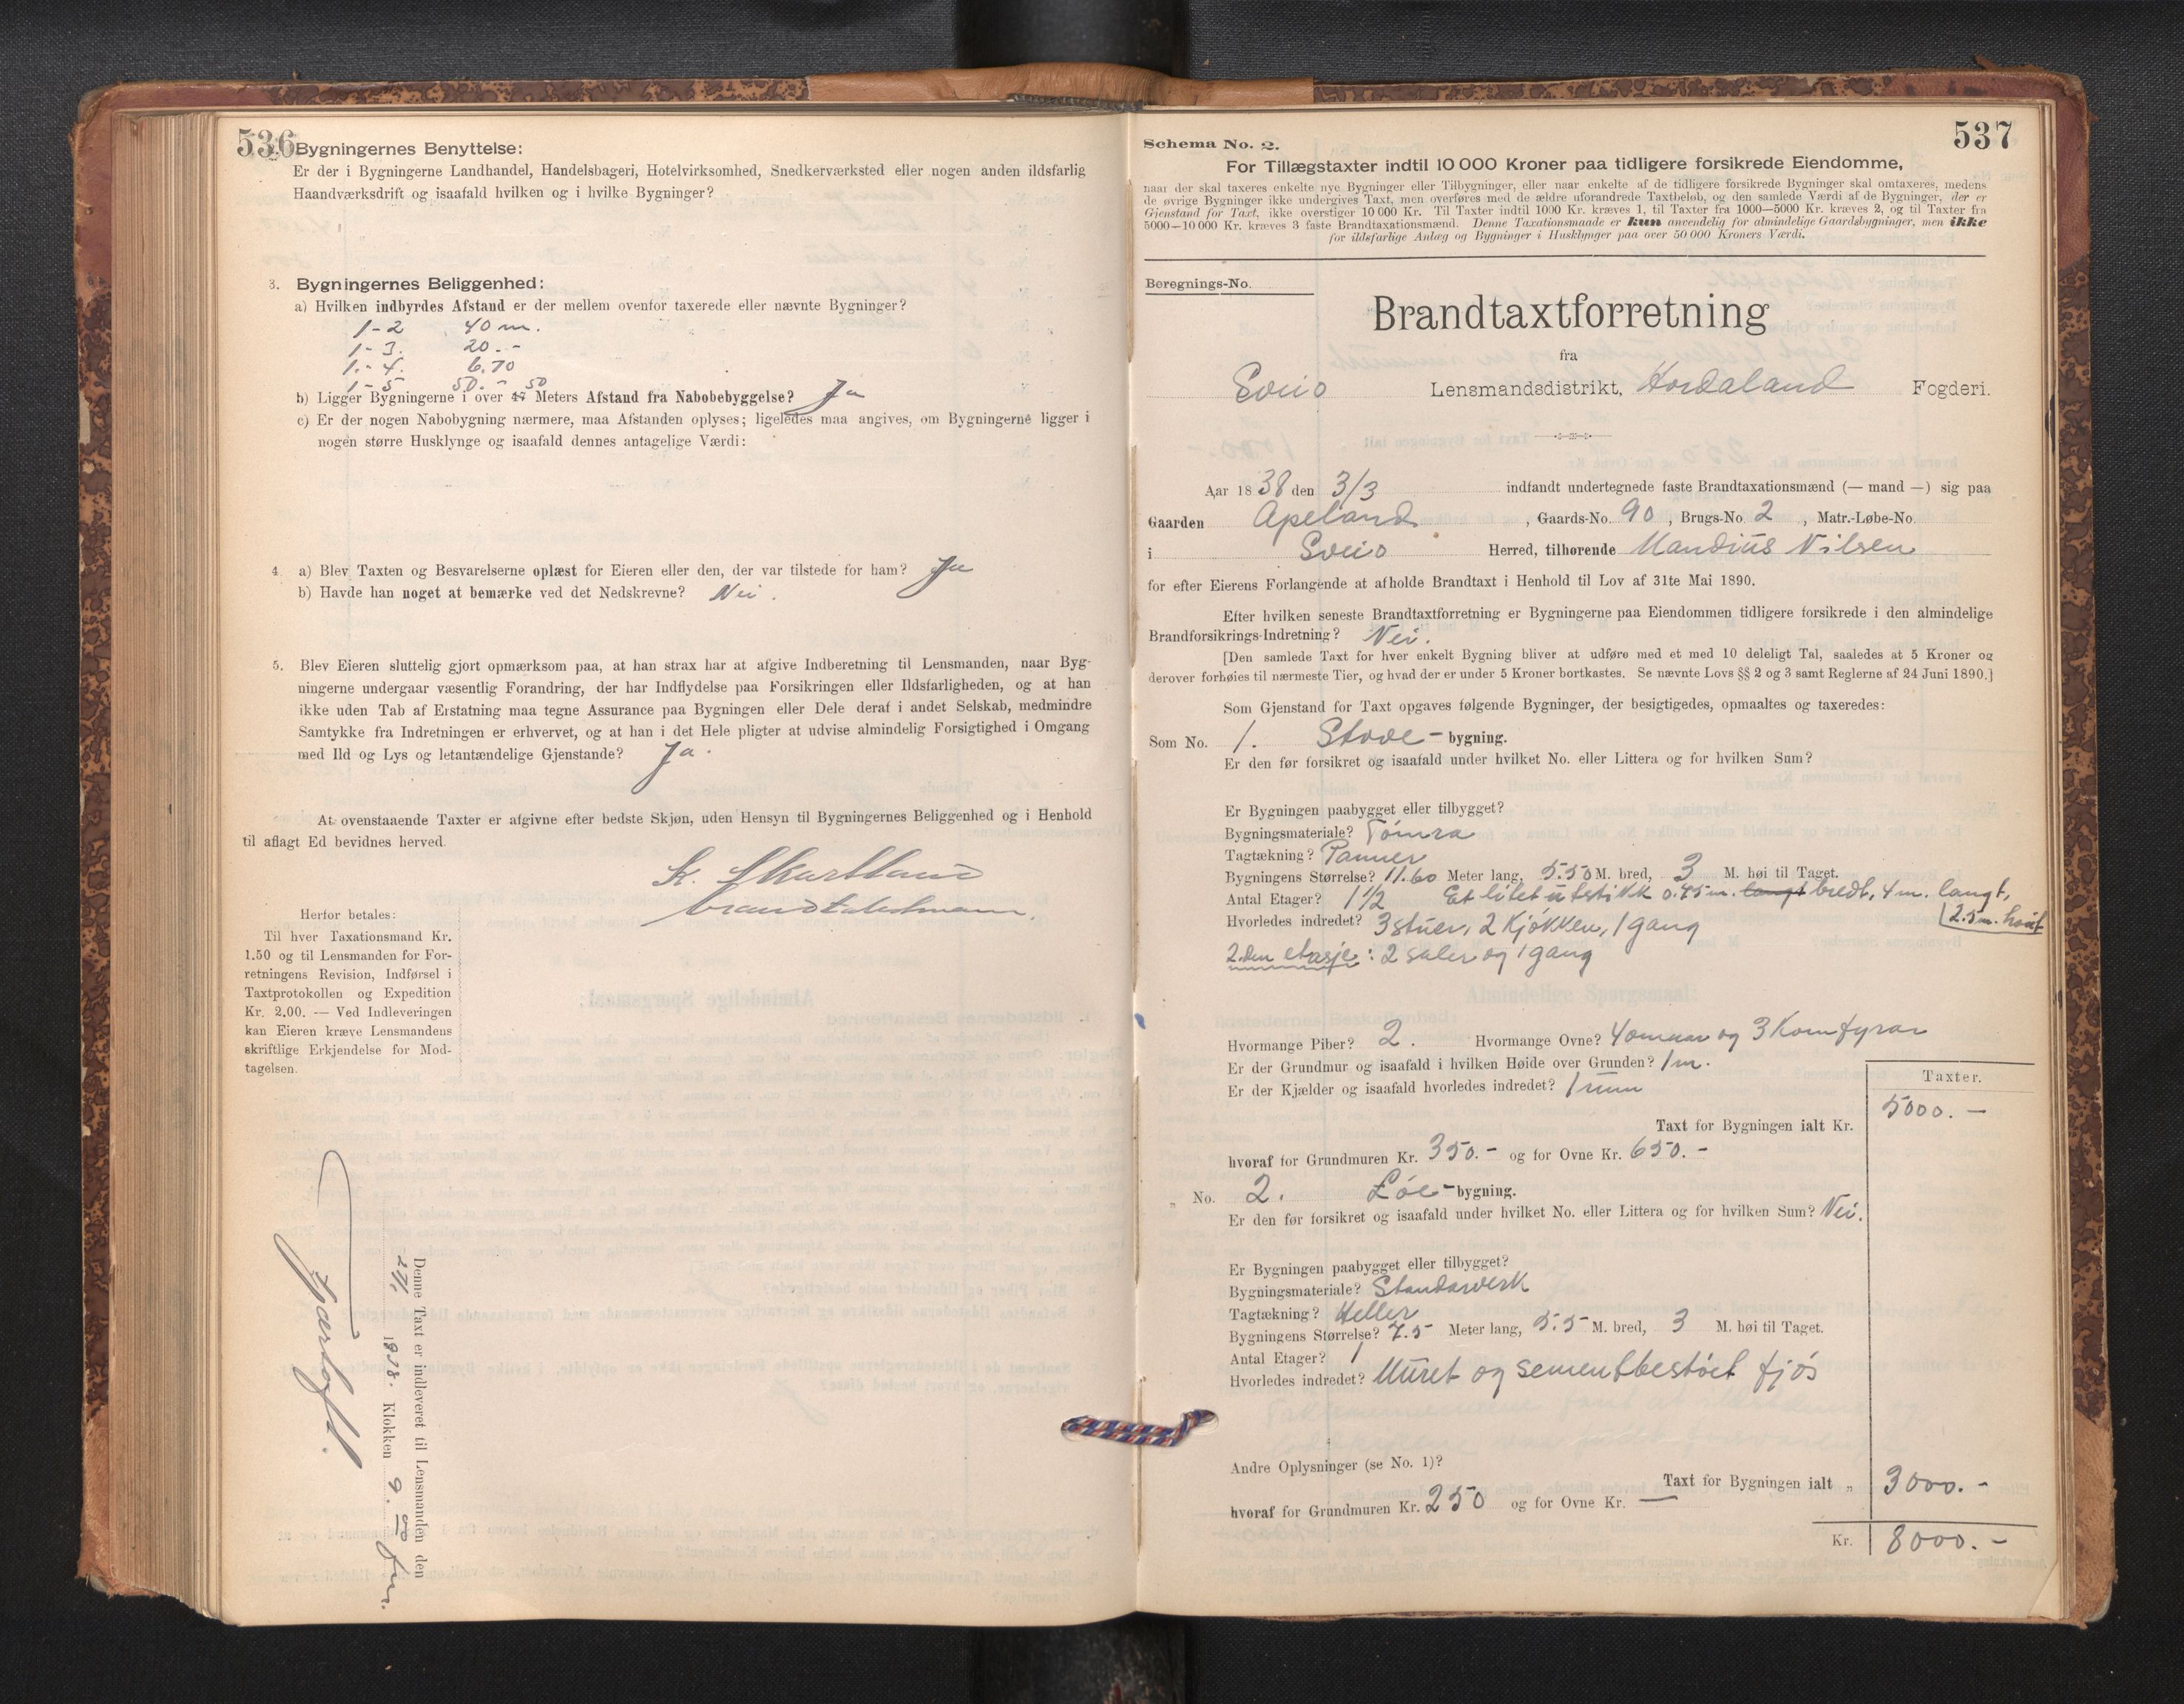 536
Bygningernes Benyttelse:
Er der i Bygningerne Landhandel, Handelsbageri, Hotelvirksomhed, Snedkerværksted eller nogen anden ildsfarlig
Haandværksdrift og isaafald hvilken og i hvilke Bygninger?
3. Bygningernes Beliggenhed:
a) Hvilken indbyrdes Afstand er der mellem ovenfor taxerede eller nævnte Bygninger?
1-2 40 m.
1-3. 20. -
1.-4. 6.70
1-5 50. - 50
b) Ligger Bygningerne i over Meters Afstand fra Nabobebyggelse? Ja
c) Er der nogen Nabobygning nærmere, maa Afstanden oplyses; ligeledes maa angives, om Bygningerne ligger i
nogen større Husklynge og isaafald dennes antagelige Værdi:
4. a) Blev Taxten og Besvarelserne oplæst for Eieren eller den, der var tilstede for ham? Ja
b) Havde han noget at bemærke ved det Nedskrevne? Nei.
5. Blev Eieren sluttelig gjort opmærksom paa, at han strax har at afgive Indberetning til Lensmanden, naar Byg-
ningerne undergaar væsentlig Forandring, der har Indflydelse paa Forsikringen eller Ildsfarligheden, og at han
ikke uden Tab af Erstatning maa tegne Assurance paa Bygningen eller Dele deraf i andet Selskab, medmindre
Samtykke fra Indretningen er erhvervet, og at han i det Hele pligter at udvise almindelig Forsigtighed i Omgang
med Ild og Lys og letantændelige Gjenstande? Ja.
At ovenstaaende Taxter er afgivne efter bedste Skjøn, uden Hensyn til Bygningernes Beliggenhed og i Henhold
til aflagt Ed bevidnes herved.
K.
Herfor betales:
Til hver Taxationsmand Kr.
1.50 og til Lensmanden for For-
retningens Revision, Indførsel i
Taxtprotokollen og Expedition
Kr. 2.00. — Ved Indleveringen
kan Eieren kræve Lensmandens
skriftlige Erkjendelse for Mod-
tagelsen.
Denne Taxt er indleveret til Lensmanden den
1838. Klokken 9.
537
Schema No. 2.
For Tillægstaxter indtil 10 000 Kroner paa tidligere forsikrede Eiendomme,
naar der skal taxeres enkelte nye Bygninger eller Tilbygninger, eller naar enkelte af de tidligere forsikrede Bygninger skal omtaxeres, medens
de øvrige Bygninger ikke undergives Taxt, men overføres med de ældre uforandrede Taxtbeløb, og den samlede Værdi af de Bygninger, der er
Gjenstand for Taxt, ikke overstiger 10 000 Kr. Til Taxter indtil 1000 Kr. kræves 1, til Taxter fra 1000—5000 Kr. kræves 2, og til Taxter fra
5000—10 000 Kr. kræves 3 faste Brandtaxationsmænd. Denne Taxationsmaade er kun anvendelig for almindelige Gaardsbygninger, men ikke
for ildsfarlige Anlæg og Bygninger i Husklynger paa over 50 000 Kroners Værdi.
Beregnings-No.
Brandtaxtforretning
fra
Sveio Lensmandsdistrikt, Hordaland Fogderi.
Aar 1838 den 3/3 indfandt undertegnede faste Brandtaxationsmænd (— mand —) sig paa
Gaarden Apeland, Gaards-No. 90, Brugs-No. 2, Matr.-Løbe-No.
i Sveio Herred, tilhørende Mandius Nilsen
for efter Eierens Forlangende at afholde Brandtaxt i Henhold til Lov af 31te Mai 1890.
Efter hvilken seneste Brandtaxtforretning er Bygningerne paa Eiendommen tidligere forsikrede i den almindelige
Brandforsikrings-Indretning? Nei.
[Den samlede Taxt for hver enkelt Bygning bliver at udføre med et med 10 deleligt Tal, saaledes at 5 Kroner og
derover forhøies til nærmeste Tier, og hvad der er under 5 Kroner bortkastes. Se nævnte Lovs §§ 2 og 3 samt Reglerne af 24 Juni 1890.]
Som Gjenstand for Taxt opgaves følgende Bygninger, der besigtigedes, opmaaltes og taxeredes:
Som No. 1. Stove-bygning.
Er den før forsikret og isaafald under hvilket No. eller Littera og for hvilken Sum?
Er Bygningen paabygget eller tilbygget?
Bygningsmateriale? Tømra
Tagtækning? Panner
Bygningens Størrelse? 11.60 Meter lang, 5.50 M. bred, 3 M. høi til Taget.
Antal Etager? 1 1/2 Et litet utstikk 0.45 m. langt bredt, 4 m. langt,
2.5 m. høit
Hvorledes indredet? 3 stuer, 2 Kjøkken, 1 gang
2.den etasje: 2 saler og 1 gang
Hvormange Piber? 2. Hvormange Ovne? 4 omnar og 3 Komfyrar
Er der Grundmur og isaafald i hvilken Høide over Grunden? 1 m.
Er der Kjælder og isaafald hvorledes indredet? 1 rum
Taxter.
Taxt for Bygningen ialt Kr. 5000. -
hvoraf for Grundmuren Kr. 350. - og for Ovne Kr. 650. -
" No. 2. Løe-bygning.
Er den før forsikret og isaafald under hvilket No. eller Littera og for hvilken Sum? Nei.
Er Bygningen paabygget eller tilbygget?
Bygningsmateriale? Standarverk
Tagtækning? Heller
Bygningens Størrelse? 7.5 Meter lang, 5.5 M. bred, 3 M. høi til Taget.
Antal Etager? 1
Hvorledes indredet? Muret og sementbestøit fjøs
Andre Oplysninger (se No. 1)?
Taxt for Bygningen ialt " 3000. -
hvoraf for Grundmuren Kr. 250 og for Ovne Kr. —
Kr. 8000. -